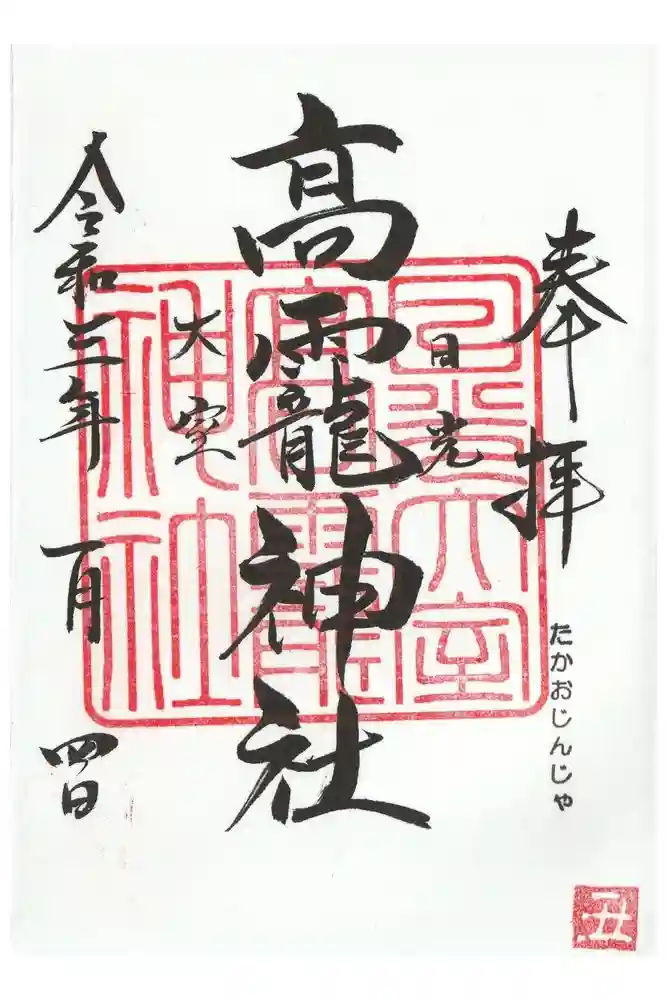 奉拝
たかおじんじゃ
丑
日光
高龗神社
大室
令和三年一月四日
日光大室
高龗
神社